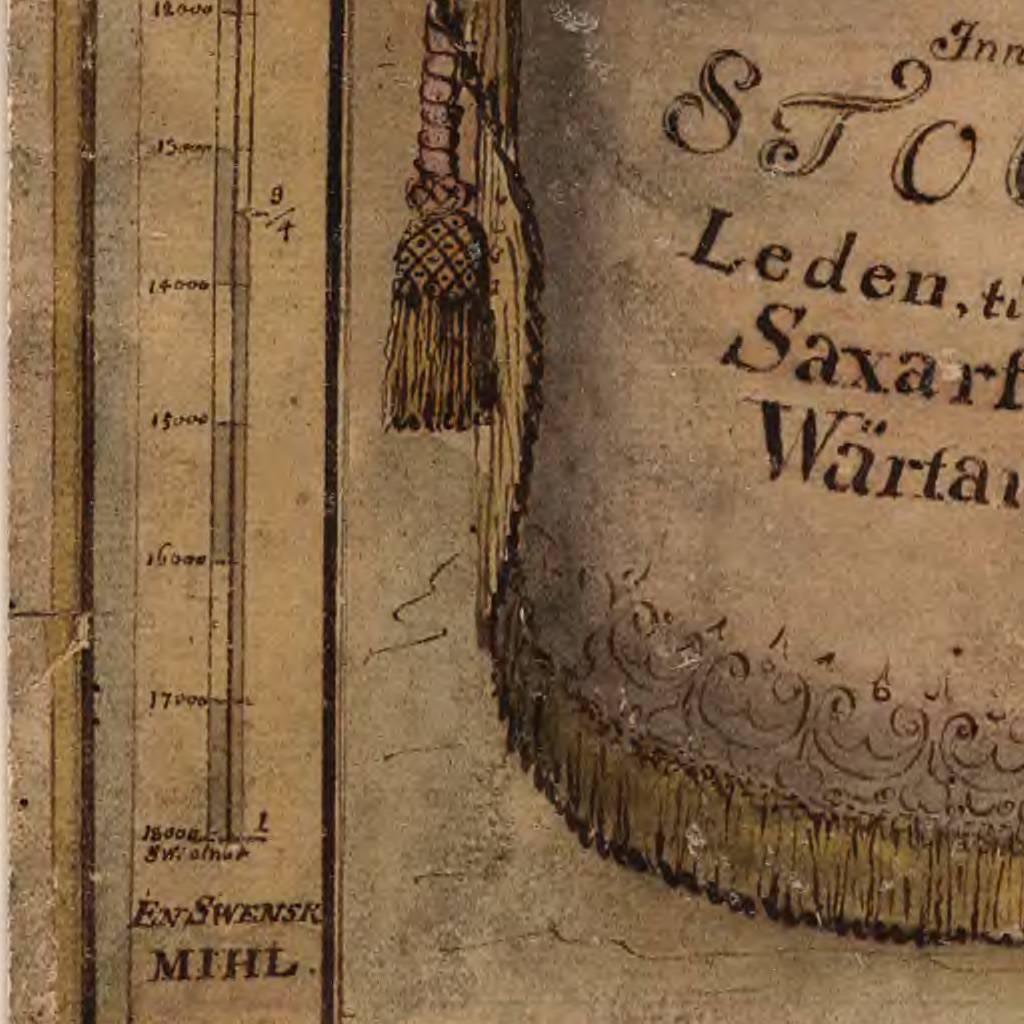 12000
13000
14000
15000
16000
17000
18000
1
EN SWENSK
MIHL.
Inn
STOC
Leden, ti
Saxarf
Wärta